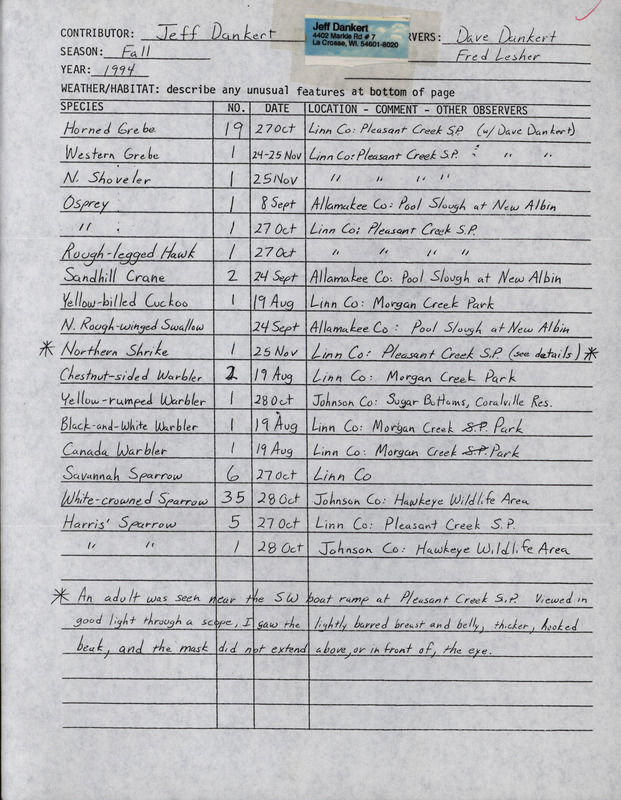 CONTRIBUTOR: Jeff Dankert
Jeff Dankert
4402 Markle Rd # 7
La Crosse, WI. 54601-8020
RVERS: Dave Dankert
SEASON: Fall Fred Lesher
YEAR: 1994
WEATHER/HABITAT: describe any unusual features at bottom of page
SPECIES NO. DATE LOCATION - COMMENT - OTHER OBSERVERS
Horned Grebe 19 27 Oct Linn Co: Pleasant Creek S.P. (w/ Dave Dankert)
Western Grebe 1 24-25 Nov Linn Co: Pleasant Creek S.P. : " "
N. Shoveler 1 25 Nov " " " "
Osprey 1 8 Sept Allamakee Co: Pool Slough at New Albin
" : 1 27 Oct Linn Co: Pleasant Creek S.P.
Rough-legged Hawk 1 27 Oct " " " "
Sandhill Crane 2 24 Sept Allamakee Co: Pool Slough at New Albin
Yellow-billed Cuckoo 1 19 Aug Linn Co: Morgan Creek Park
N. Rough-winged Swallow 24 Sept Allamakee Co: Pool Slough at New Albin
* Northern Shrike 1 25 Nov Linn Co: Pleasant Creek S.P. (see details) *
Chestnut-sided Warbler 2 19 Aug Linn Co: Morgan Creek Park
Yellow-rumped Warbler 1 28 Oct Johnson Co: Sugar Bottoms, Coralville Res.
Black-and-White Warbler 1 19 Aug Linn Co: Morgan Creek S.P. Park
Canada Warbler 1 19 Aug Linn Co: Morgan Creek S.P. Park
Savannah Sparrow 6 27 Oct Linn Co
White-crowned Sparrow 35 28 Oct Johnson Co: Hawkeye Wildlife Area
Harris' Sparrow 5 27 Oct Linn Co: Pleasant Creek S.P.
" " 1 28 Oct Johnson Co: Hawkeye Wildlife Area
* An adult was seen near the SW boat ramp at Pleasant Creek S.P. Viewed in
good light through a scope, I saw the lightly barred breast and belly, thicker, hooked
beak, and the mask did not extend above, or in front of, the eye.